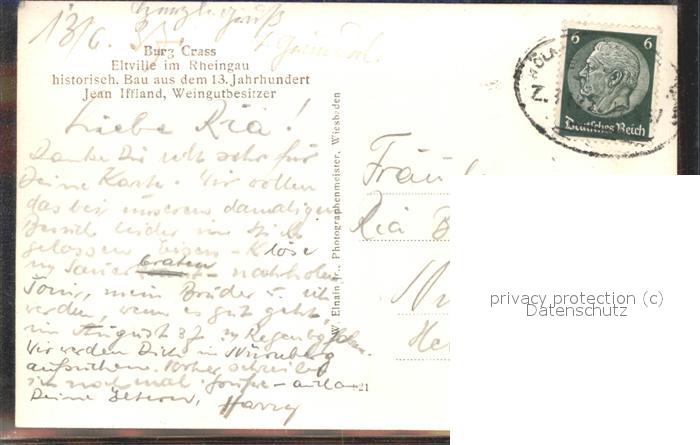 Herzlichst Gruß
13/6. 37.
Burg Crass
Eltville im Rheingau
historisch. Bau aus dem 13. Jahrhundert
Jean Iffland, Weingutbesitzer
Liebe Ria!
Danke Dir recht sehr für
Deine Karte. Wir wollen
das bei unserem damaligen
Besuch leider im Stich
gelassen - Klöse
Sauerbraten - nachholen
Toni, mein Bruder u. ich
werden, wenn es gut geht,
im August 37 n. Regensbg
Wir werden Dich in Nürnberg
aufsuchen. Vorher schreibe
ich nochmal. Grüße
Deine Eltern, Harry
W. Elnain jr., Photographenmeister, Wiesbaden
421
6 6
Deutsches Reich
Fräul
Ria B
Nü
privacy protection (c)
Datenschutz